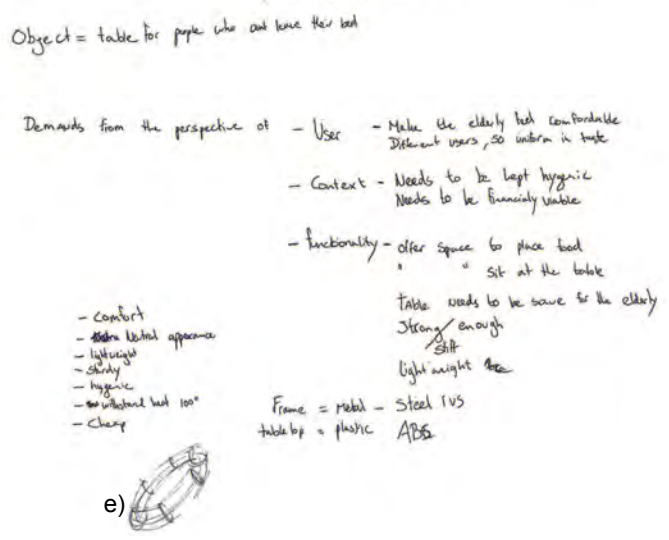 Object = table for people who cant leave their bed
Demands from the perspective of - User - Make the elderly feel comfordable
Different users, so uniform in taste
- Context - Needs to be kept hygenic
Needs to be financialy viable
- functionality - offer space to place food
" " sit at the table
Table needs to be save for the elderly
Strong / enough
stiff
light weight
- comfort
- Neutral appearance
- lightweight
- sturdy
- hygenic
- withstand heat 100°
- Cheap
Frame = metal - Steel
tabletop = plastic ABS
e)